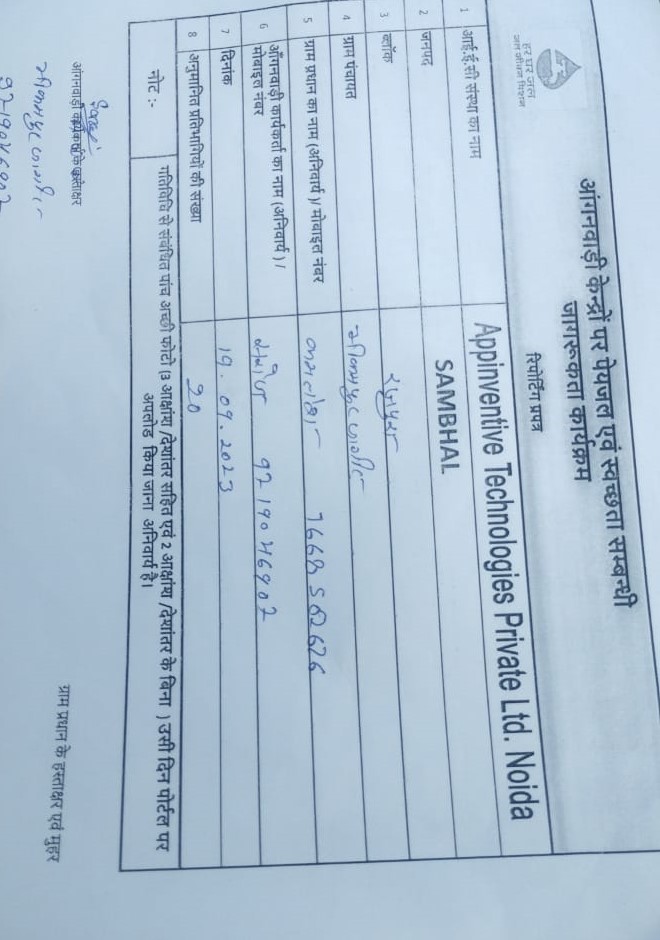 हर घर जल
जल जीवन मिशन
आंगनवाड़ी केन्द्रों पर पेयजल एवं स्वच्छता सम्बन्धी
जागरूकता कार्यक्रम
रिपोर्टिंग प्रपत्र
1 आई.ई.सी संस्था का नाम Appinventive Technologies Private Ltd. Noida
2 जनपद SAMBHAL
3 ब्लॉक रजपुरा
4 ग्राम पंचायत
5 ग्राम प्रधान का नाम (अनिवार्य )/ मोबाइल नंबर
6 आँगनवाड़ी कार्यकर्ता का नाम (अनिवार्य ) /
मोबाइल नंबर 9219046902
7 दिनांक 19.09.2023
8 अनुमानित प्रतिभागियों की संख्या 20
नोट :- गतिविधि से संबंधित पांच अच्छी फोटो (3 आक्षांश /देशांतर सहित एवं 2 आक्षांश /देशांतर के बिना ) उसी दिन पोर्टल पर
अपलोड किया जाना अनिवार्य है।
आंगनवाड़ी हस्ताक्षर
ग्राम प्रधान के हस्ताक्षर एवं मुहर